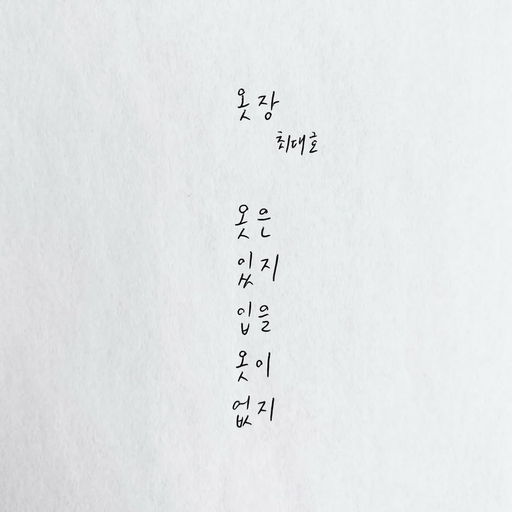 옷장
최대호
옷은
있지
입을
옷이
없지